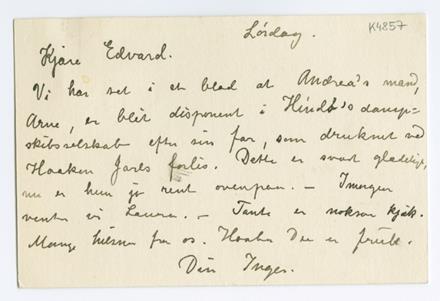 K4857
Lördag.
Kjære Edvard.
Vi har set i et blad at Andrea's mand,
Arne, er blit disponent i Hindö's damp-
skibsselskab efter sin far, som druknet ved
Haakon Jarls forlis. Dette er svært glædeligt,
nu er hun jo rent ovenpaa. — Imorgen
venter vi Laura. — Tante er noksaa kjæk.
Mange hilsner fra os. Haaber Du er frisk.
Din Inger.